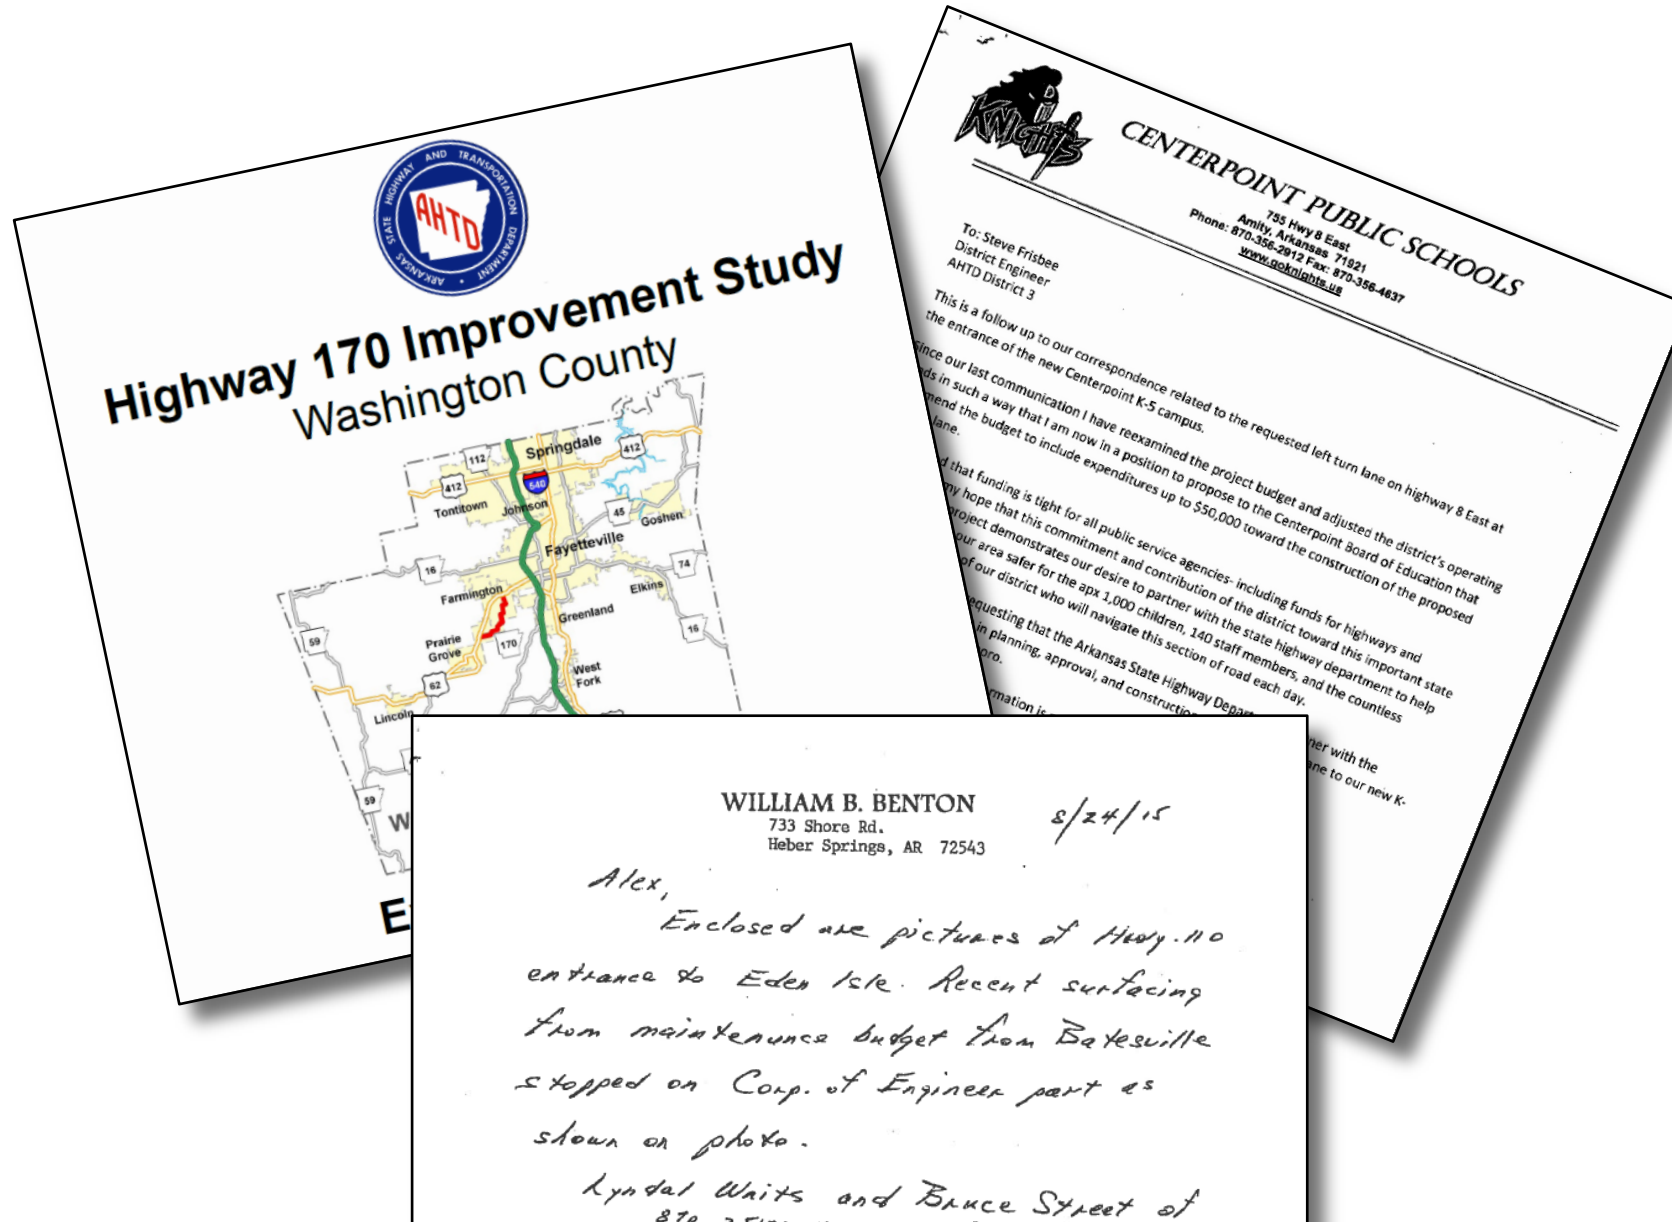 ARKANSAS STATE HIGHWAY AND TRANSPORTATION DEPARTMENT
AHTD
Highway 170 Improvement Study
Washington County
Springdale
112
412
412
540
Tontitown
Johnson
45
Goshen
Fayetteville
16
74
Farmington
Elkins
Greenland
59
Prairie
Grove
170
16
62
West
Fork
Lincoln
59
W
E
KNIGHTS
CENTERPOINT PUBLIC SCHOOLS
755 Hwy 8 East
Amity, Arkansas 71921
Phone: 870-356-2912 Fax: 870-356-4637
www.goknights.us
To: Steve Frisbee
District Engineer
AHTD District 3
This is a follow up to our correspondence related to the requested left turn lane on highway 8 East at
the entrance of the new Centerpoint K-5 campus.
ince our last communication I have reexamined the project budget and adjusted the district's operating
ds in such a way that I am now in a position to propose to the Centerpoint Board of Education that
mend the budget to include expenditures up to $50,000 toward the construction of the proposed
lane.
d that funding is tight for all public service agencies- including funds for highways and
my hope that this commitment and contribution of the district toward this important state
project demonstrates our desire to partner with the state highway department to help
our area safer for the apx 1,000 children, 140 staff members, and the countless
of our district who will navigate this section of road each day.
equesting that the Arkansas State Highway Depart
ner with the
in planning, approval, and construction
ane to our new K-
pro.
rmation is
WILLIAM B. BENTON
733 Shore Rd.
Heber Springs, AR 72543
8/24/15
Alex,
Enclosed are pictures of Hwy. 110
entrance to Eden Isle. Recent surfacing
from maintenance budget from Batesville
stopped on Corp. of Engineer part as
shown on photo.
Lyndal Waits and Bruce Street of
870